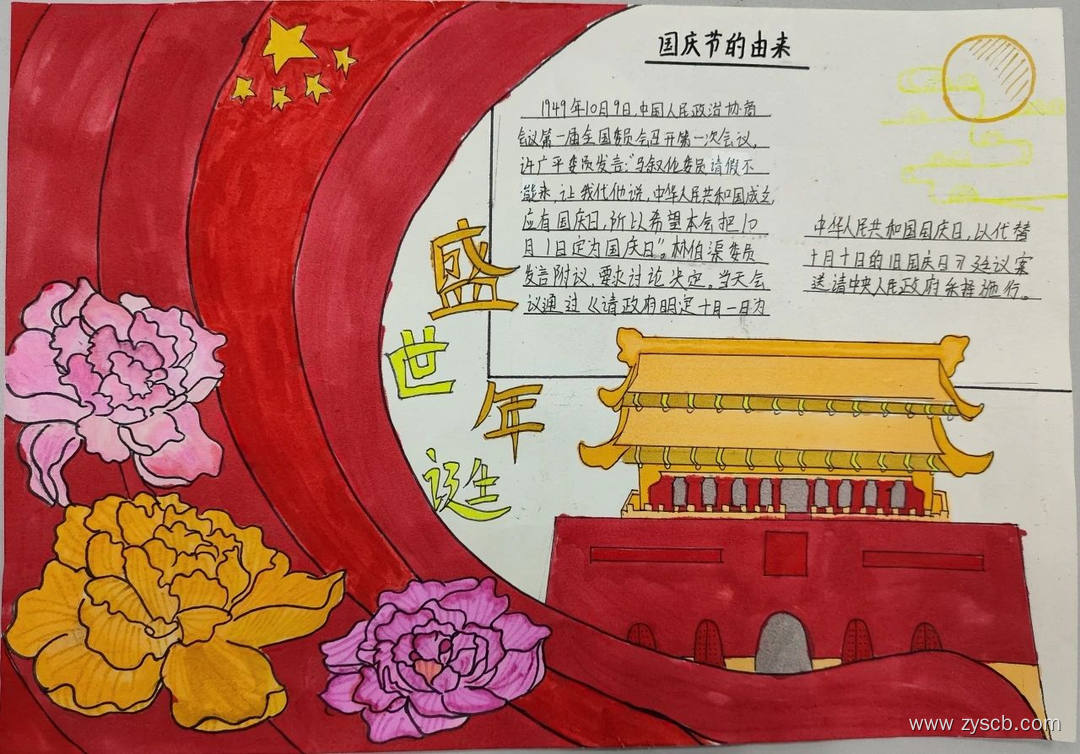 国庆节的由来
1949年10月9日,中国人民政治协商
会议第一届全国委员会召开第一次会议,
许广平委员发言:"马叙伦委员请假不
能来,让我代他说,中华人民共和国成立,
应有国庆日,所以希望本会把10
月1日定为国庆日"。林伯渠委员
发言附议,要求讨论决定。当天会
议通过《请政府明定十月一日为
中华人民共和国国庆日,以代替
十月十日的旧国庆日》建议案
送请中央人民政府采择施行。
盛
世
年
诞生
www.zyscb.com